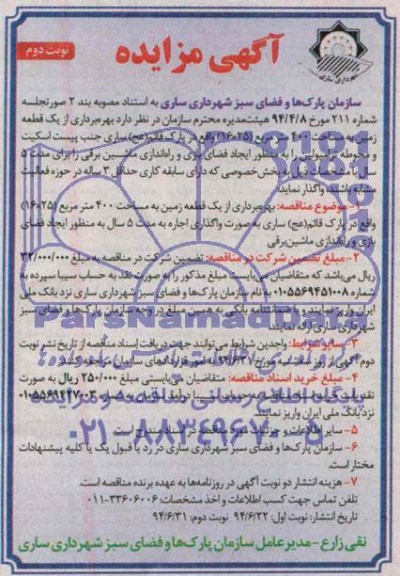 نوبت دوم
آگهی مزایده
شهرداری ساری
سازمان پارک‌ها و فضای سبز شهرداری ساری به استناد مصوبه بند ۲ صورتجلسه
شماره ۲۱۱ مورخ ۹۴/۴/۸ هیئت‌مدیره محترم سازمان در نظر دارد بهره‌برداری از یک قطعه
زمین به مساحت ۴۰۰ متر مربع (۲۵*۱۶) واقع در پارک قائم(عج) ساری جنب پیست اسکیت
و محوطه ترامپولین را به منظور ایجاد فضای بازی و راه‌اندازی ماشین برقی را برای مدت ۵
سال با مشخصات ذیل به بخش خصوصی که دارای سابقه کاری حداقل ۳ ساله در حوزه فعالیت
مشابه باشند، واگذار نمایند.
۱- موضوع مناقصه: بهره‌برداری از یک قطعه زمین به مساحت ۴۰۰ متر مربع (۲۵*۱۶)
واقع در پارک قائم(عج) ساری به صورت واگذاری اجاره به مدت ۵ سال به منظور ایجاد فضای
بازی و راه‌اندازی ماشین‌برقی
۲- مبلغ تضمین شرکت در مناقصه: تضمین شرکت در مناقصه به مبلغ ۳۲/۰۰۰/۰۰۰
ریال می‌باشد که متقاضیان می‌بایست مبلغ مذکور را به صورت نقد به حساب سیبا سپرده به
شماره ۰۱۰۵۵۶۹۴۵۱۰۰۸ به نام سازمان پارک‌ها و فضای سبز شهرداری ساری نزد بانک ملی
ایران واریز نمایند و یا ضمانتنامه بانکی به همین مبلغ در وجه سازمان پارک‌ها و فضای سبز
شهرداری ساری ارائه نمایند.
۳- سایر شرایط: واجدین شرایط می‌توانند جهت دریافت اسناد مناقصه از تاریخ نشر نوبت
دوم آگهی از روز سه‌شنبه مورخ ۹۴/۶/۳۱ به امور قراردادهای سازمان مراجعه کنند.
۴- مبلغ خرید اسناد مناقصه: متقاضیان می‌بایستی مبلغ ۲۵۰/۰۰۰ ریال به صورت
نقد به حساب سیبا درآمد سازمان به شماره ۰۱۰۵۵۶۹۴۴۷۰۰۳
نزد بانک ملی ایران واریز نمایند.
۵- سایر اطلاعات و جزئیات مورد مناقصه در اسناد مندرج است.
۶- سازمان پارک‌ها و فضای سبز شهرداری ساری در رد یا قبول یک یا کلیه پیشنهادات
مختار است.
۷- هزینه انتشار دو نوبت آگهی در روزنامه‌ها به عهده برنده مناقصه است.
تلفن تماس جهت کسب اطلاعات و اخذ مشخصات: ۳۳۶۰۶۰۰۶-۰۱۱
تاریخ انتشار: نوبت اول: ۹۴/۶/۲۲ نوبت دوم: ۹۴/۶/۳۱
نقی زارع - مدیرعامل سازمان پارک‌ها و فضای سبز شهرداری ساری
ParsNamadData
پایگاه اطلاع رسانی مناقصه و مزایده
۰۲۱-۸۸۳۴۹۶۷۰-۵